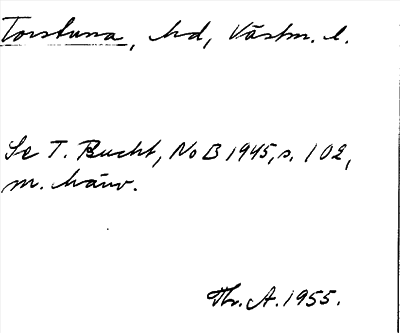 Torstuna, hd, Västm. l.
Se T. Bucht, NoB 1945, s. 102,
m. hänv.
Thr. A. 1955.